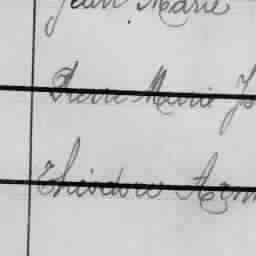 Jean Marie
Pierre Marie Jo
Théodore Azm